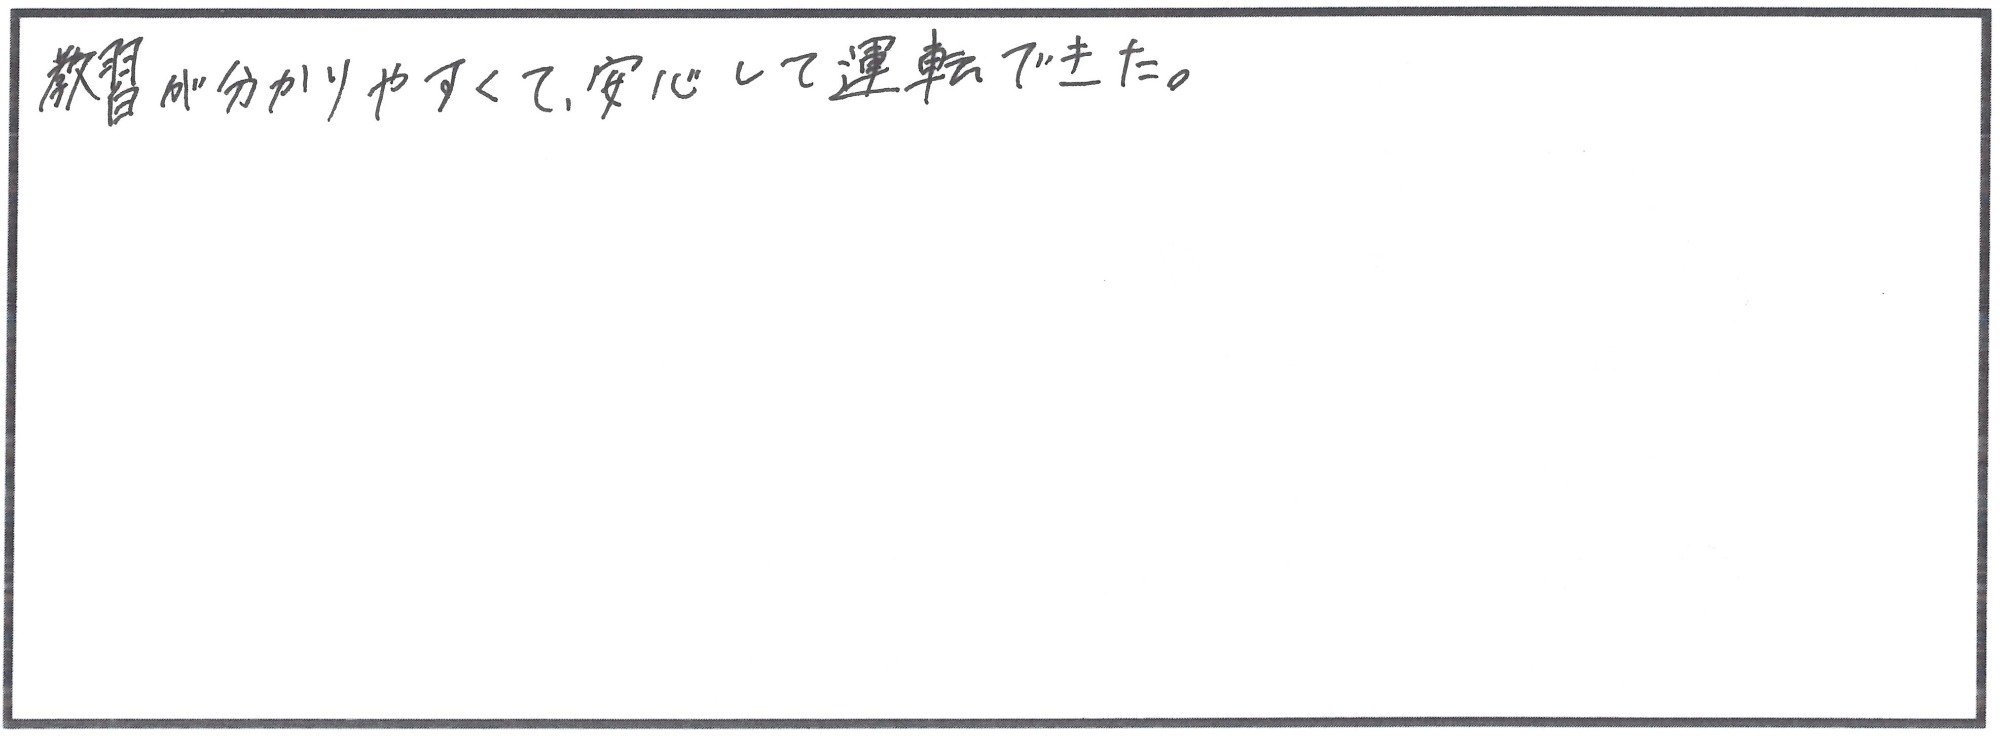 教習が分かりやすくて、安心して運転できた。